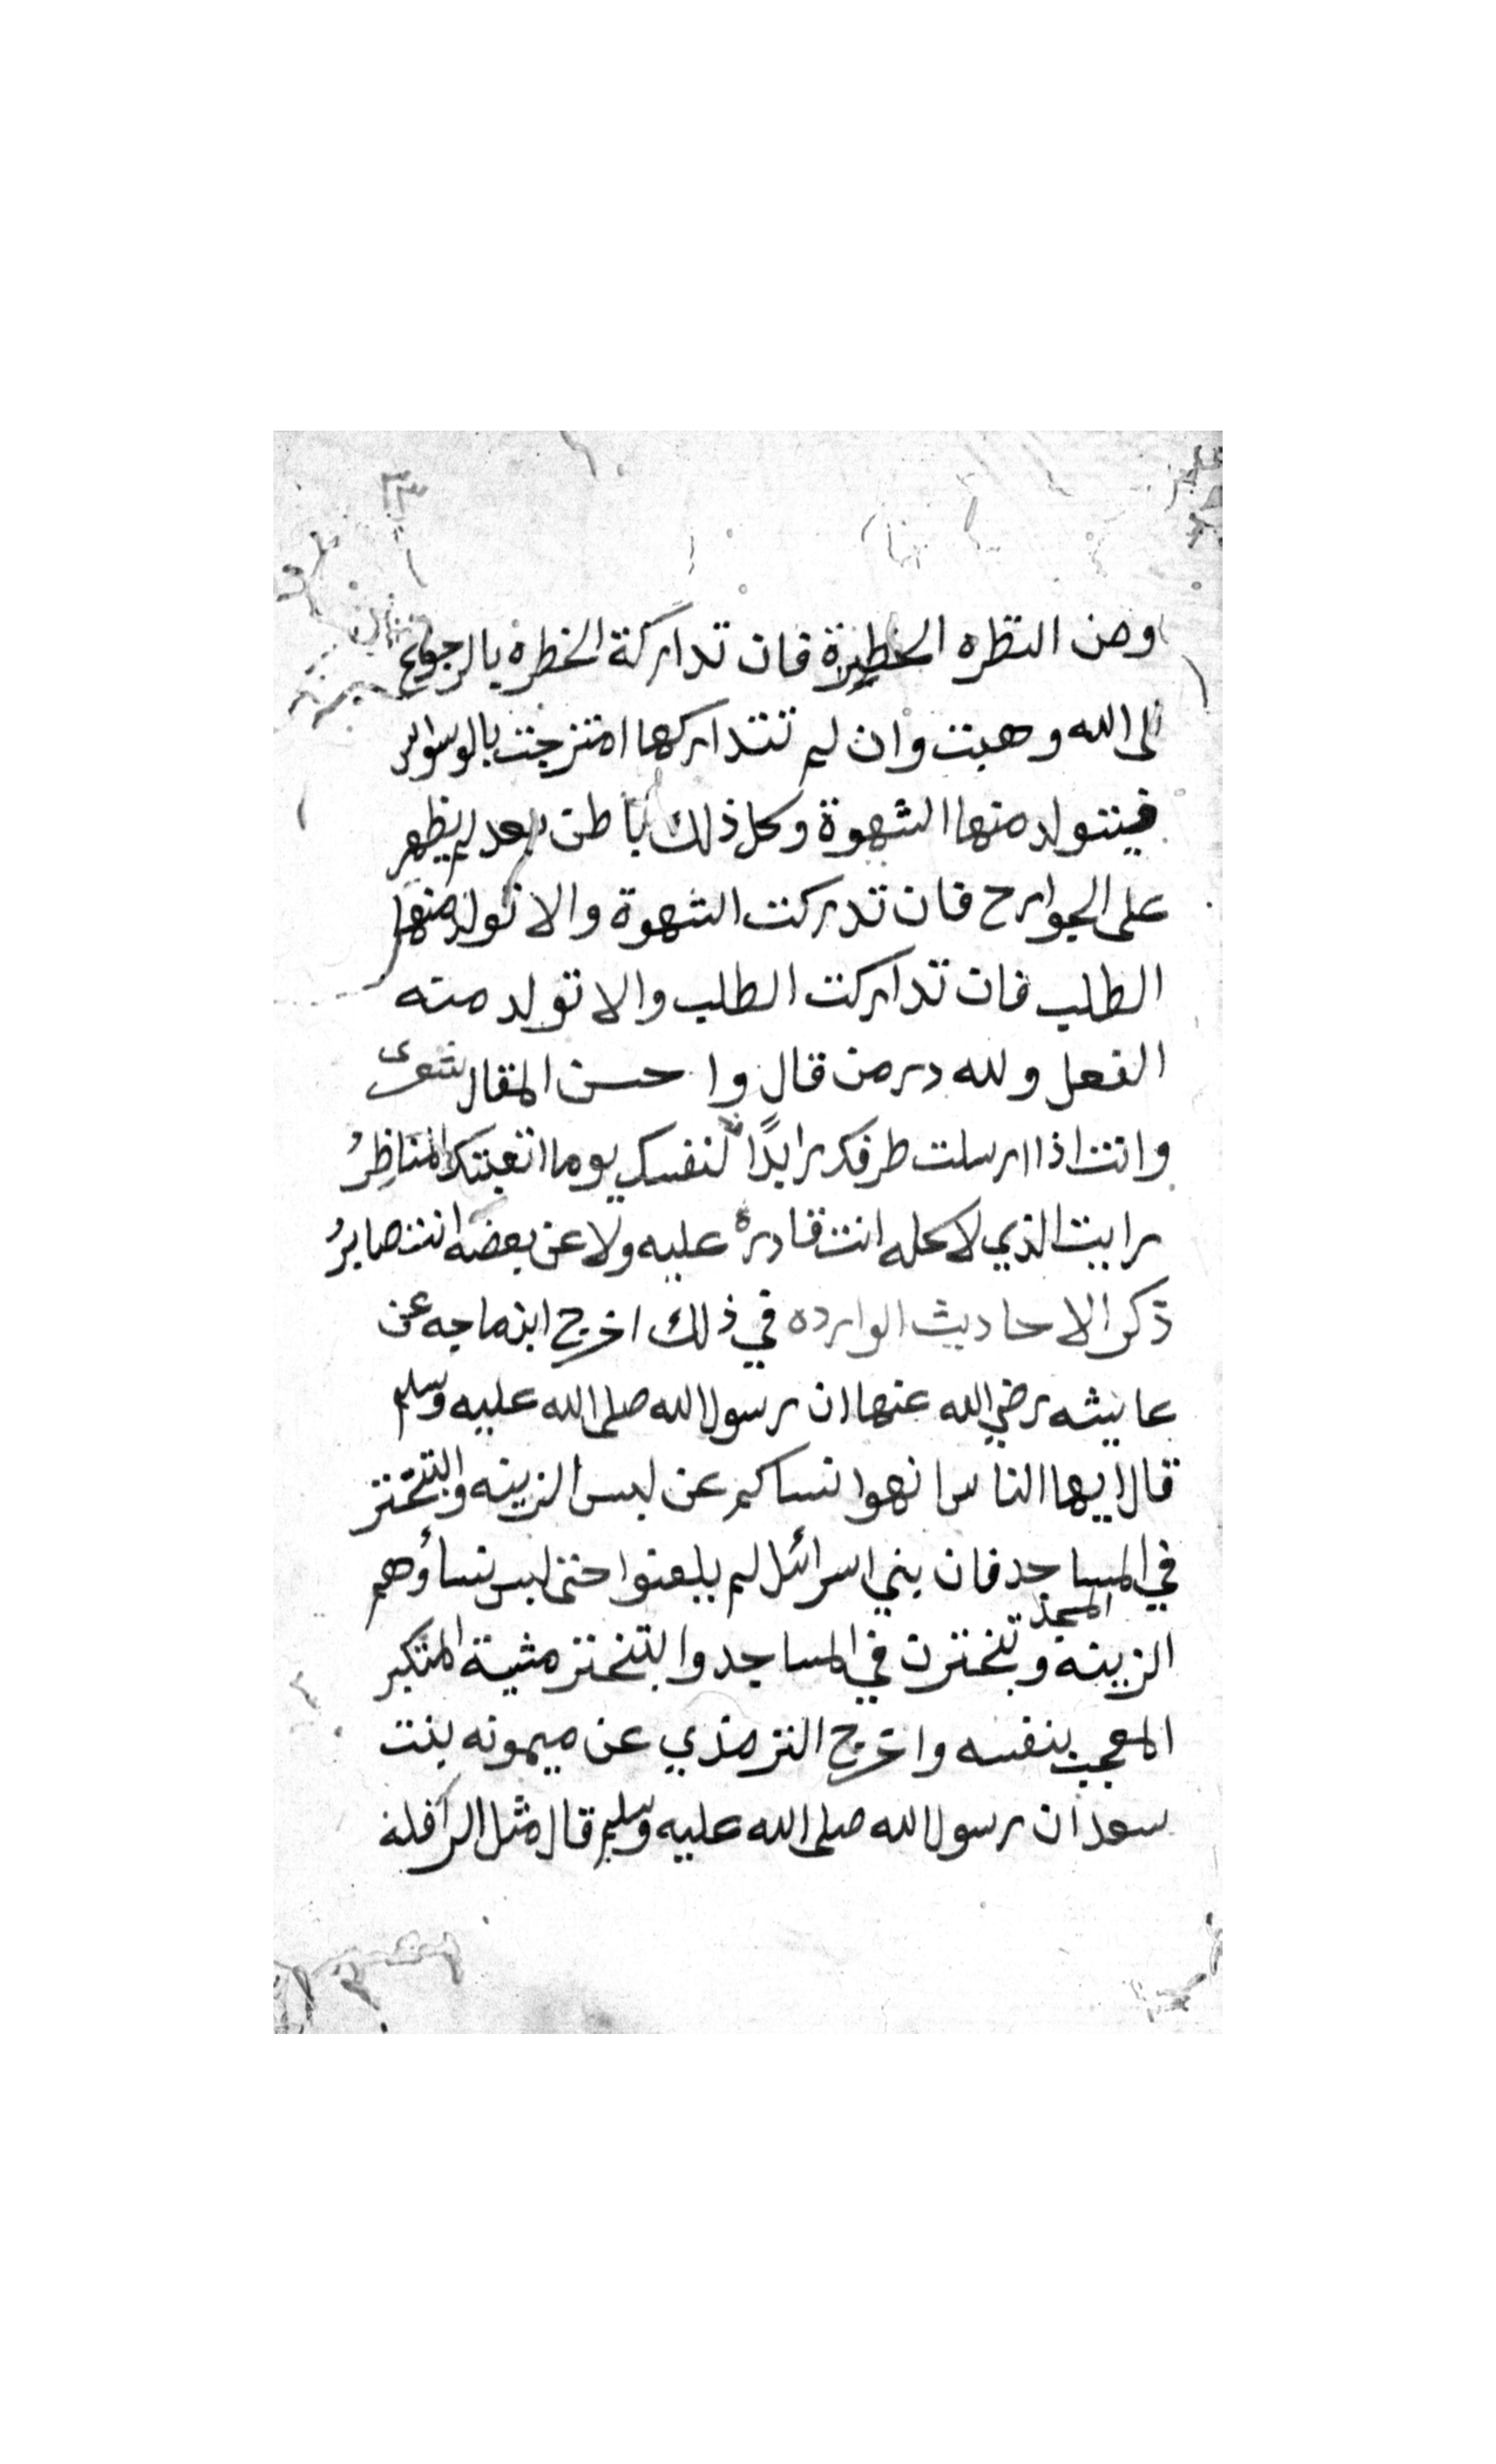 ومن النظره الخطيرة فان تداركة الخطره بالرجوع
الى الله وهبت وان لم تتداركها امتزجت بالوسواس
فيتولد منها الشهوة وكل ذلك باطن بعد لم يظهر
على الجوارح فان تدركت الشهوة والا تولد منها
الطلب فان تداركت الطلب والا تولد منه
الفعل ولله در من قال واحسن المقال شعر
وانت اذا ارسلت طرفك رايدًا لنفسك يوما اتعبتك المناظِرُ
رايت الذي لا كله انت قادره عليه ولا عن بعضه انت صابرُ
ذكر الاحاديث الوارده في ذلك اخرج ابن ماجه عن
عايشه رضي الله عنها ان رسول الله صلى الله عليه وسلم
قال ايها الناس انهوا نساكم عن لبس الزينه والتبختر
في المساجد فان بني اسرائل لم يلعنوا حتى لبس نساؤهم
المسجد
الزينه وتبخترن في المساجد والتبختر مشية المتكبر
المعجب بنفسه واخرج الترمذي عن ميمونه بنت
سعد ان رسول الله صلى الله عليه وسلم قال مثل الرافلة